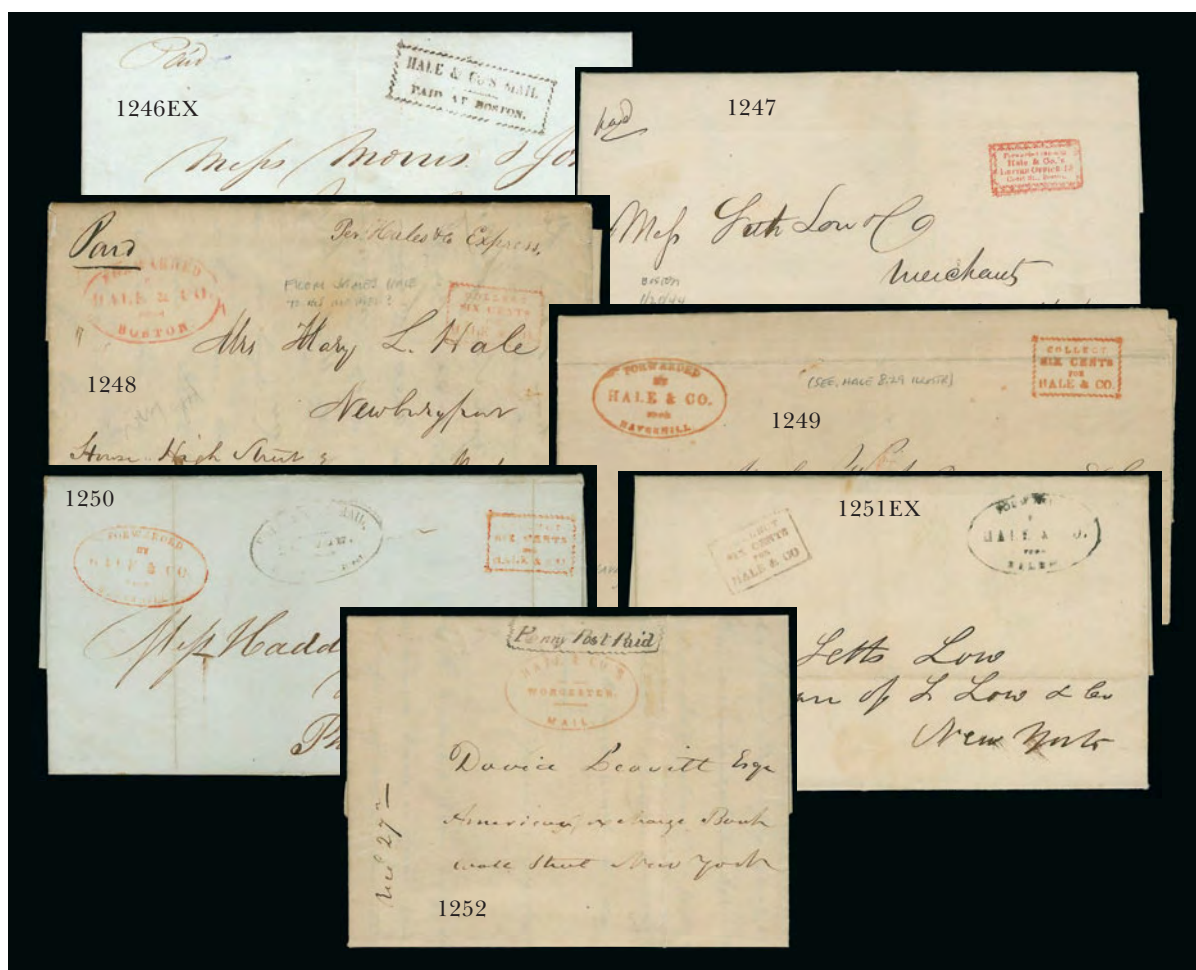 Paid
HALE & CO'S MAIL
PAID AT BOSTON.
1246EX
Mess Morris & Jo
1247
paid
Forwarded through
Hale & Co.'s
Letter Office 13
Court St., Boston.
Mess Seth Low & Co
Merchants
BOSTON
Paid
Per Hale & Co Express,
FORWARDED
HALE & CO.
FROM
BOSTON.
FROM JAMES HALE
COLLECT
SIX CENTS
HALE & CO.
Mrs Mary L. Hale
1248
Newburyport
House High Street
FORWARDED
BY
HALE & CO.
FROM
HAVERHILL
(SEE, HALE 8:29 ILLUSTR)
COLLECT
SIX CENTS
FOR
HALE & CO.
1249
1250
FORWARDED
BY
HALE & CO
FROM
MAIL.
COLLECT
SIX CENTS
FOR
HALE & CO.
Mess Hadd
Ph
1251EX
COLLECT
SIX CENTS
FOR
HALE & CO
FORWARDED
HALE & CO.
FROM
SALEM
Setts Low
of S Low & Co
New York
Penny Post Paid
HALE & CO'S
WORCESTER.
MAIL.
David Leavitt Esqr
American Exchange Bank
Wall Street New York
27
1252